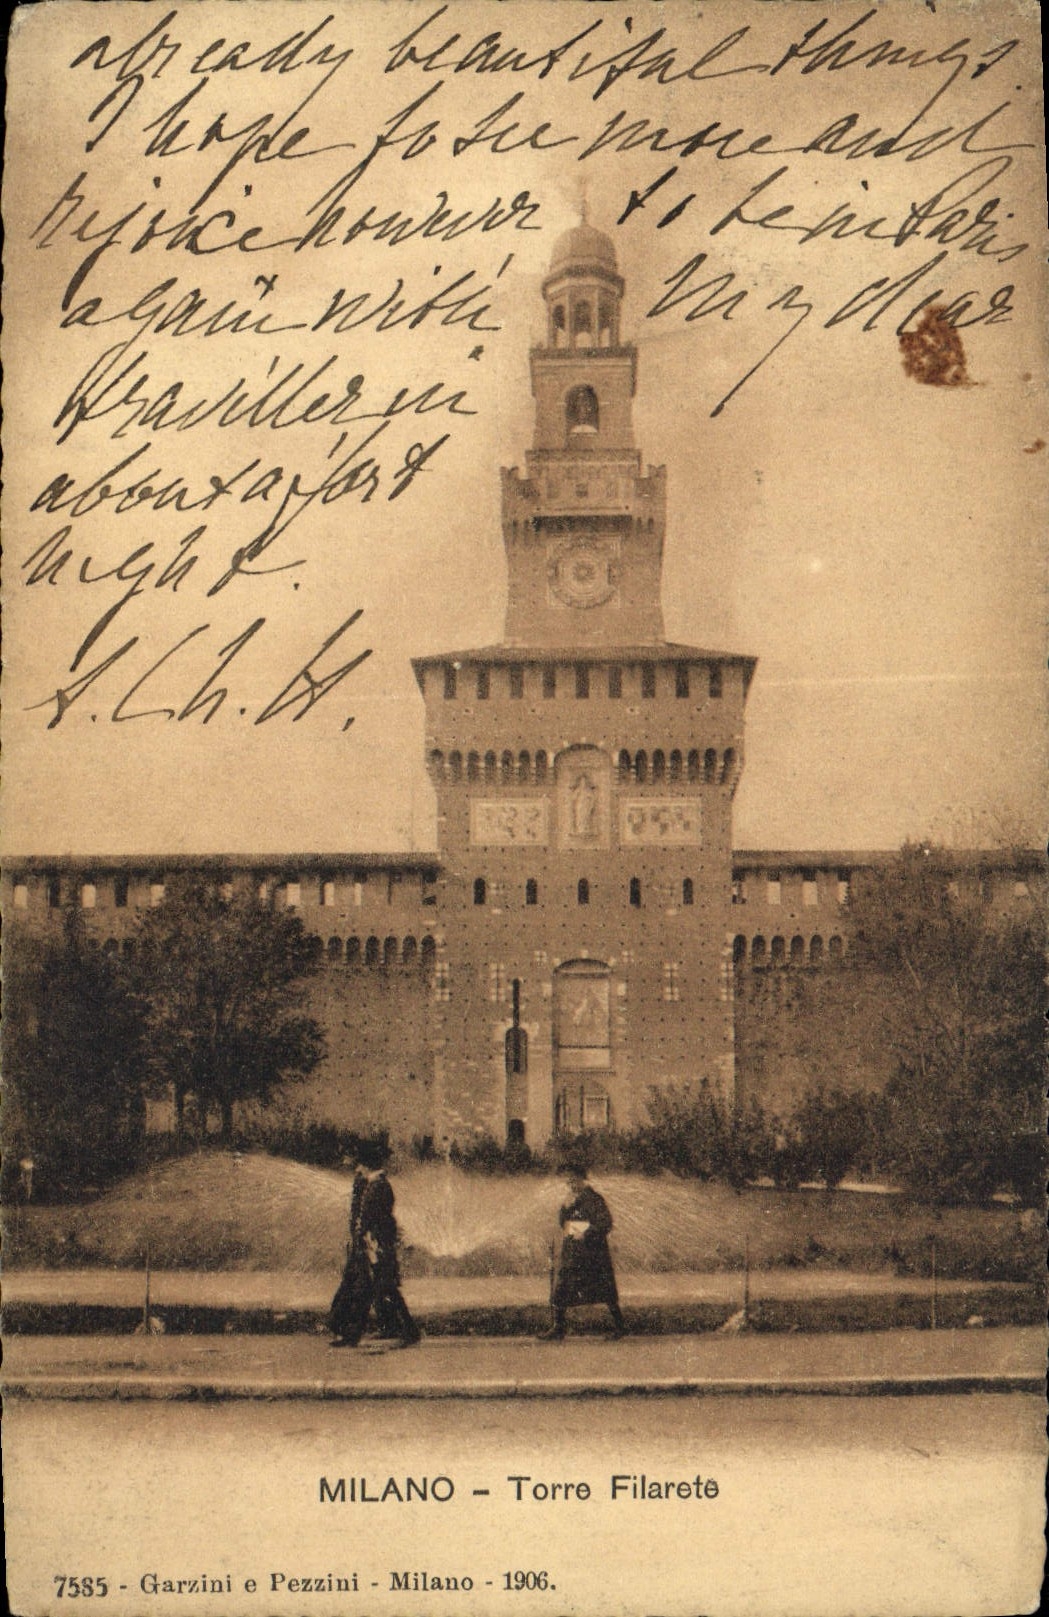 already beautiful things.
I hope to see more and
rejoice however to be in Paris
again with my dear
traviller in
about a fort
night.
A. Ch. H.
MILANO – Torre Filarete
7585 - Garzini e Pezzini - Milano - 1906.